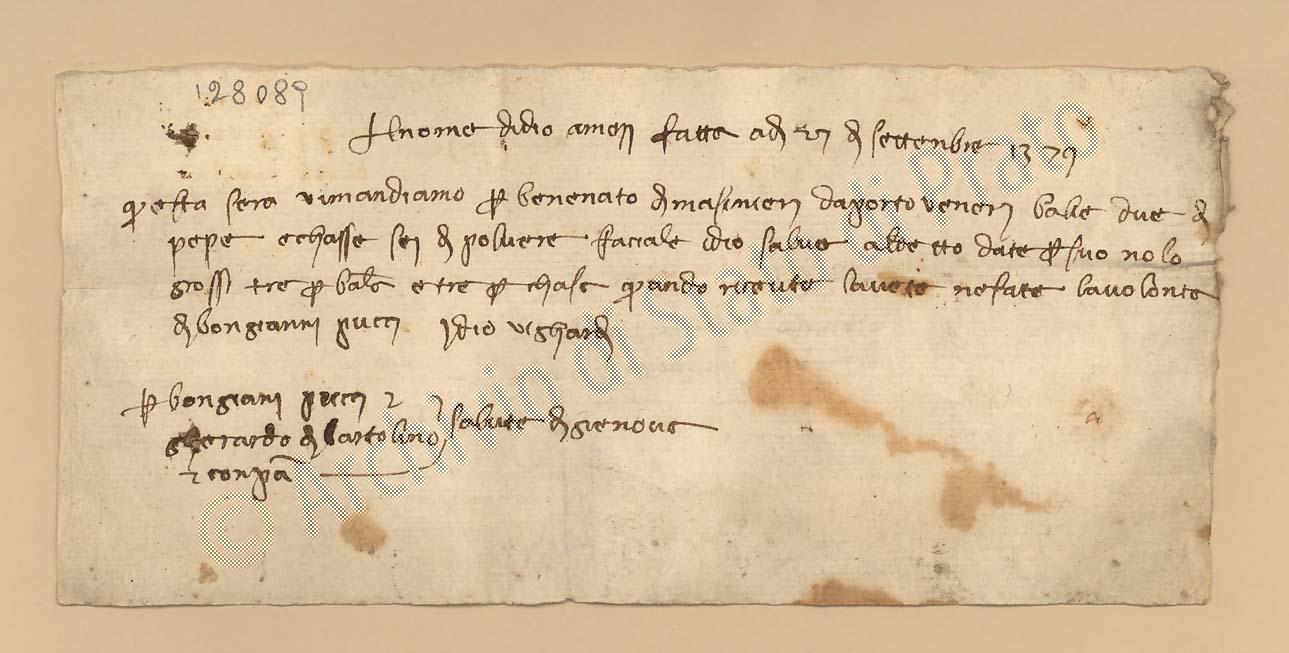 128089
Al nome didio amen fatta adi 27 di settenbre 1379
questa sera vi mandiamo per benenato di masinieri daportoveneri balle due di
pepe e chasse sei di polvere faciale idio salve al detto date per suo nolo
grossi tre per balla e tre per chasa quando riceute lavete nefate lavolonta
di bongianni pucci Idio vighardi
per bongiani pucci e
gherardo di bartolino salute di gienova
e conpa
© Archivio di Stato di Prato